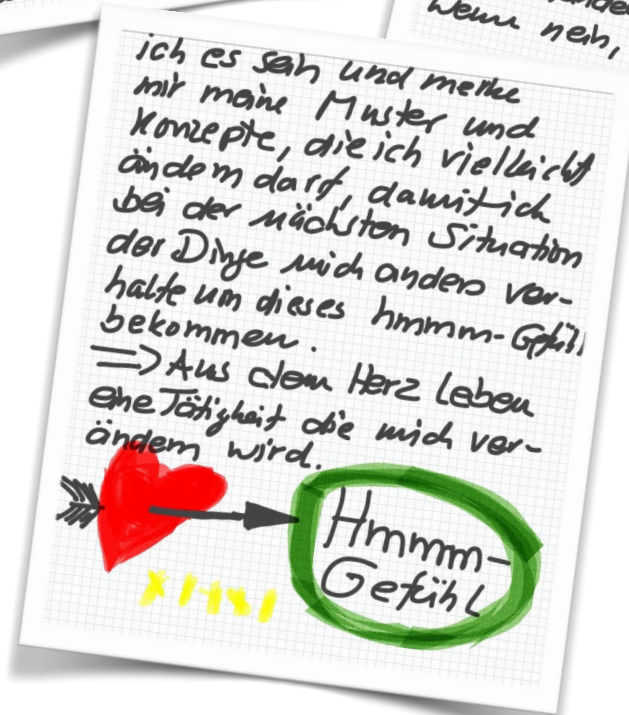 wenn nein,
ich es sein und merke
mir meine Muster und
Konzepte, die ich vielleicht
ändern darf, damit ich
bei der nächsten Situation
der Dinge mich anders ver-
halte um dieses hmmm-Gefühl
bekommen.
=> Aus dem Herz Leben
eine Tätigkeit die mich ver-
ändern wird.
Hmmm-
Gefühl